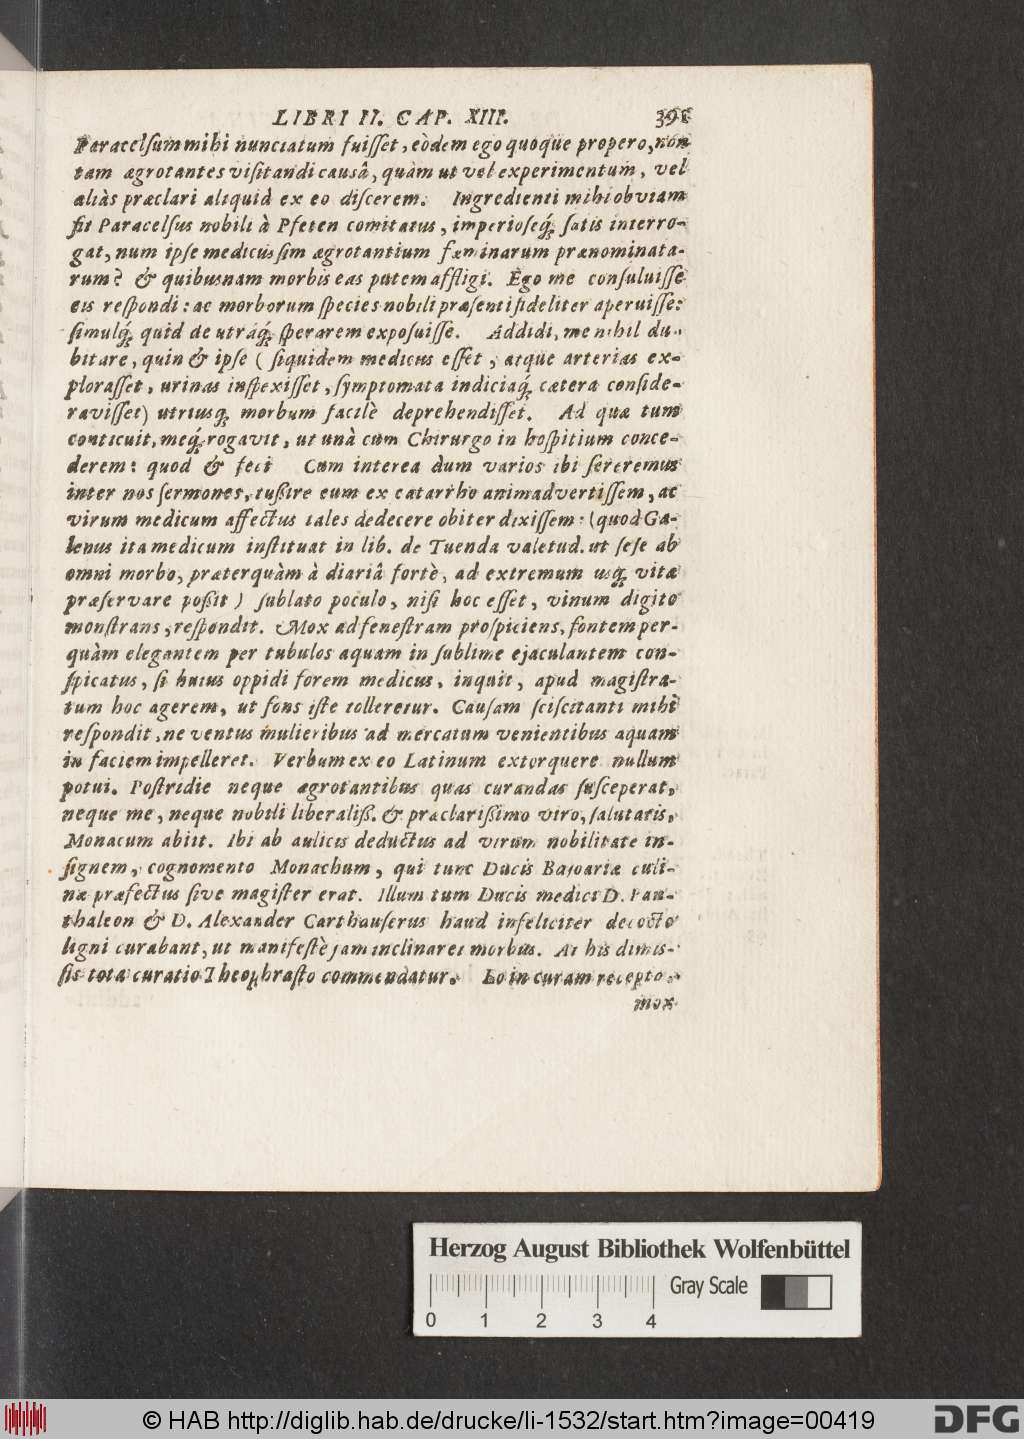 LIBRI II. CAP. XIII. 391
Paracelſum mihi nunciatum fuiſſet, eòdem ego quoque propero, non
tam ægrotantes viſitandi causâ, quàm ut vel experimentum, vel
aliàs præclari aliquid ex eo diſcerem. Ingredienti mihi obviam
fit Paracelſus nobili à Pfeten comitatus, imperioſeq́; ſatis interro-
gat, num ipſe medicus ſim ægrotantium fæminarum prænominata-
rum? & quibusnam morbis eas putem affligi. Ego me conſuluiſſe
eis reſpondi: ac morborum ſpecies nobili præſenti fideliter aperuiſſe:
ſimulq́; quid de utráq́; ſperarem expoſuiſſe. Addidi, me nihil du-
bitare, quin & ipſe (ſiquidem medicus eſſet, atque arterias ex-
ploraſſet, urinas inſpexiſſet, ſymptomata indiciaq́; cætera conſide-
raviſſet) utriusq́; morbum facilè deprehendiſſet. Ad quæ tum
conticuit, meq́; rogavit, ut unà cum Chirurgo in hoſpitium conce-
derem: quod & feci Cum interea dum varios ibi ſereremus
inter nos ſermones, tußire eum ex catarrho animadvertiſſem, ac
virum medicum affectus tales dedecere obiter dixiſſem: (quod Ga-
lenus ita medicum inſtituat in lib. de Tuenda valetud. ut ſeſe ab
omni morbo, præterquàm à diariâ fortè, ad extremum usq́; vitæ
præſervare poßit) ſublato poculo, niſi hoc eſſet, vinum digito
monſtrans, reſpondit. Mox ad feneſtram proſpiciens, fontem per-
quàm elegantem per tubulos aquam in ſublime ejaculantem con-
ſpicatus, ſi huius oppidi forem medicus, inquit, apud magiſtra-
tum hoc agerem, ut fons iſte tolleretur. Cauſam ſciſcitanti mihi
reſpondit, ne ventus mulieribus ad mercatum venientibus aquam
in faciem impelleret. Verbum ex eo Latinum extorquere nullum
potui. Poſtridie neque ægrotantibus quas curandas ſuſceperat,
neque me, neque nobili liberaliß. & præclarißimo viro, ſalutatis,
Monacum abiit. Ibi ab aulicis deductus ad virum nobilitate in-
ſignem, cognomento Monachum, qui tunc Ducis Bajoariæ culi-
næ præfectus ſive magiſter erat. Illum tum Ducis medici D. Pan-
thaleon & D. Alexander Carthauſerus haud infeliciter decocto
ligni curabant, ut manifeſtè jam inclinaret morbus. At his dimis-
ſis tota curatio Theophraſto commendatur. Eo in curam recepto,
mox
Herzog August Bibliothek Wolfenbüttel
Gray Scale
0 1 2 3 4
© HAB http://diglib.hab.de/drucke/li-1532/start.htm?image=00419
DFG